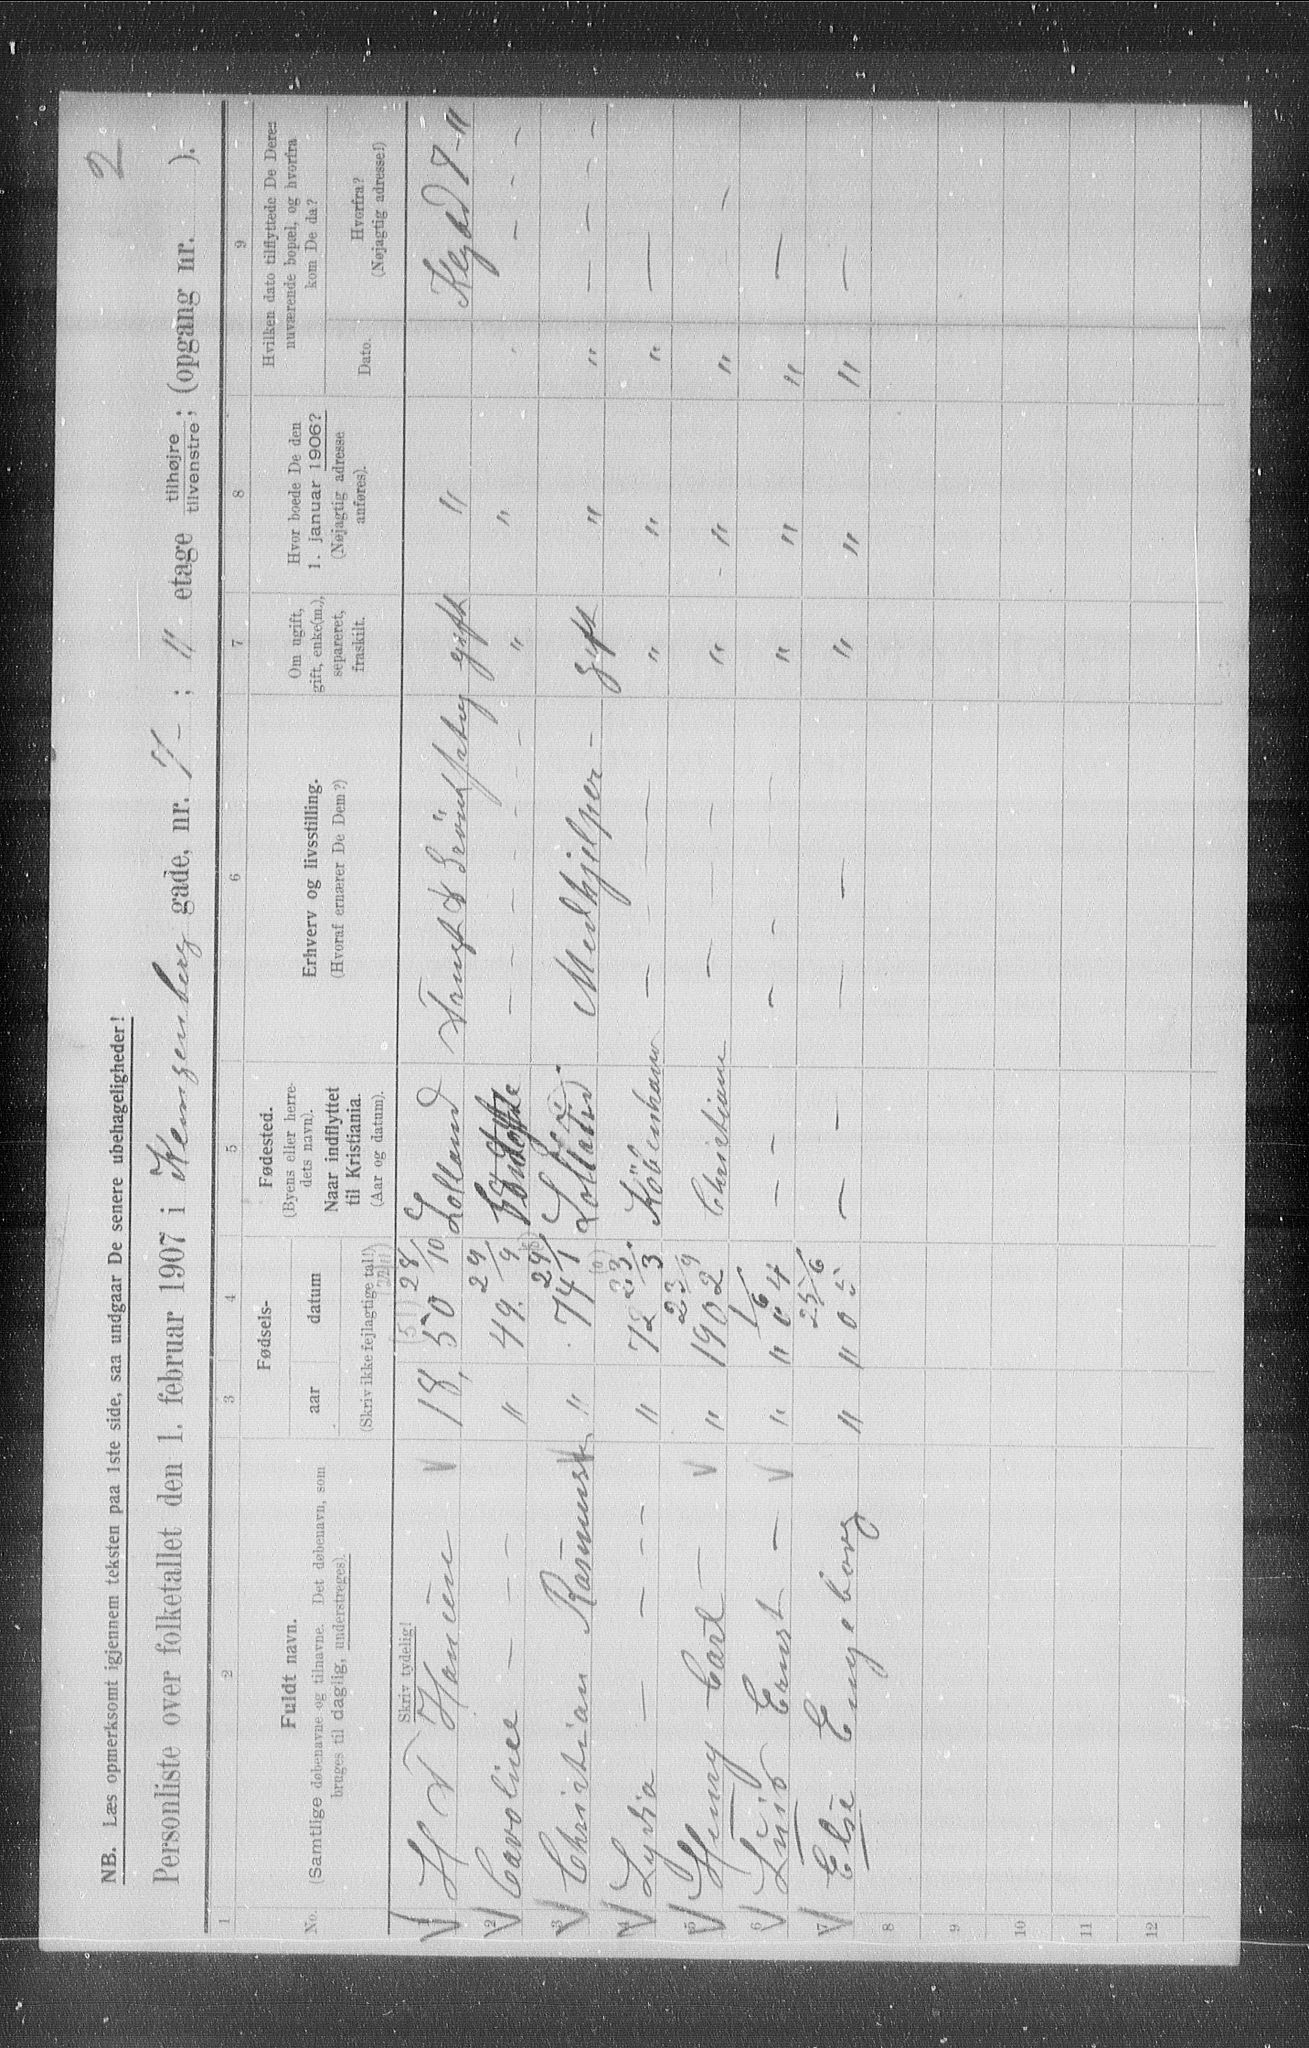 2
NB. Læs opmerksomt igjennem teksten paa 1ste side, saa undgaar De senere ubehageligheder!
Personliste over folketallet den 1. februar 1907 i Kongensberg gade, nr. 7 - ; " etage tilhøjre / tilvenstre; (opgang nr. ).
1 2 3 4 5 6 7 8 9
No.
Fuldt navn.
(Samtlige døbenavne og tilnavne. Det døbenavn, som
bruges til daglig, understreges).
Fødsels-
aar datum
(Skriv ikke fejlagtige tal!)
Fødested.
(Byens eller herre-
dets navn).
Naar indflyttet
til Kristiania.
(Aar og datum).
Erhverv og livsstilling.
(Hvoraf ernærer De Dem?)
Om ugift,
gift, enke(m.),
separeret,
fraskilt.
Hvor boede De den
1. januar 1906?
(Nøjagtig adresse
anføres).
Hvilken dato tilflyttede De Deres
nuværende bopæl, og hvorfra
kom De da?
Dato.
Hvorfra?
(Nøjagtig adresse!)
Skriv tydelig!
1 H T 18, 50 28/10 Lolland gift " Kgad 7 - "
2 Caroline — — — " 49. 29/9 - - - - " " - - -
3 Christian Rasmussen " 74 29/1 Lolland Medhjelper - gift " " - - - -
4 Lydia — — - - " 72 23/3 København - - - - " " " —
5 Henry Carl — " 1902 23/9 Christiania - - - - " - " " -
6 Ernst — " " 04 1/6 - - - - " " " —
7 Else Engeborg " " 05 25/6 - - - - " " " —
8
9
10
11
12